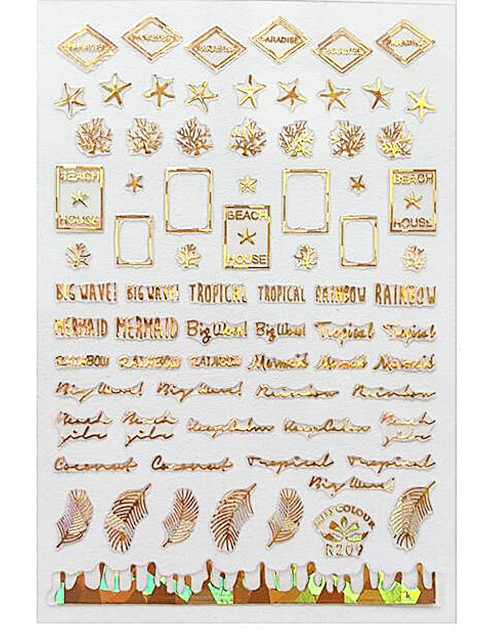 PARADISE PARADISE PARADISE PARADISE PARADISE PARADISE
BEACH HOUSE
BEACH HOUSE
BEACH HOUSE
BIG WAVE! BIG WAVE! TROPICAL TROPICAL RAINBOW RAINBOW
MERMAID MERMAID Big Wave! Big Wave! Tropical Tropical
RAINBOW RAINBOW RAINBOW Mermaid Mermaid Mermaid
Big Wave! Big Wave! Rainbow Rainbow
Beach Beach Keep Calm Keep Calm Beach
Coconut Coconut Tropical Tropical
Big Wave!
COLOUR
R209